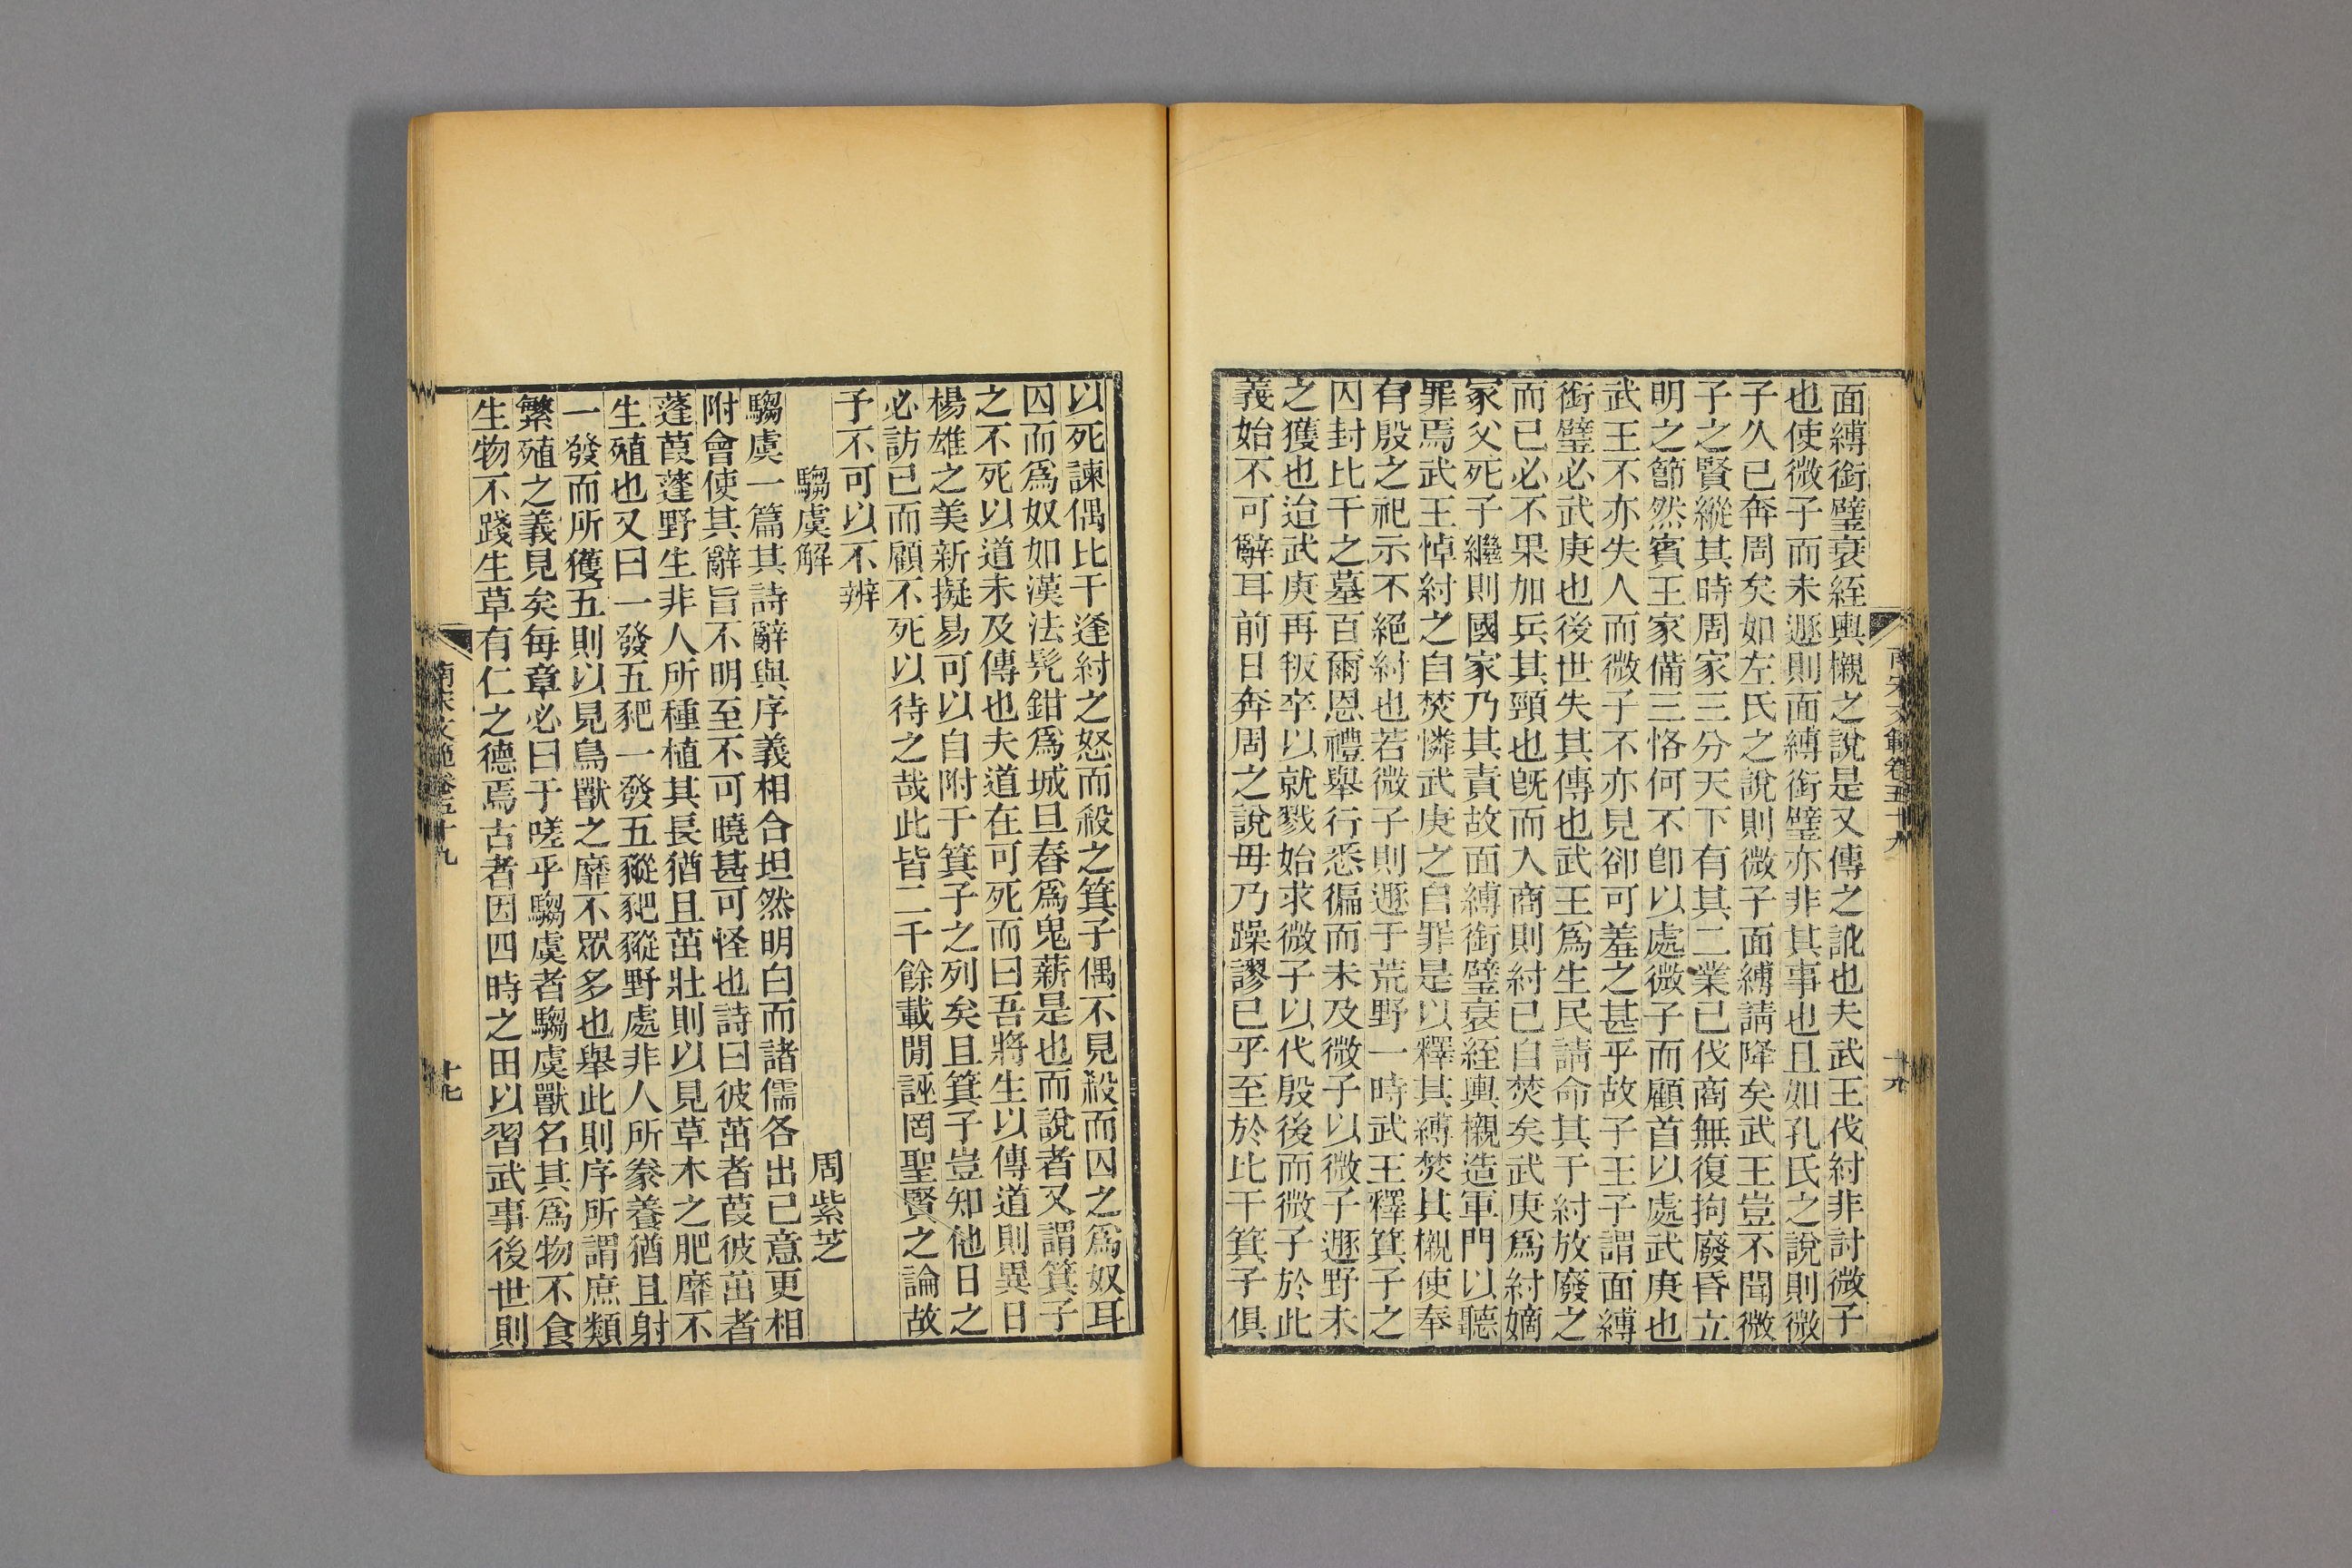 面縛銜璧衰絰輿櫬之說是又傳之訛也夫武王伐紂非討微子
也使微子而未遯則面縛銜璧亦非其事也且如孔氏之說則微
子久已奔周矣如左氏之說則微子面縛請降矣武王豈不聞微
子之賢縱其時周家三分天下有其二業已伐商無復拘廢昏立
明之節然賓王家備三恪何不卽以處微子而顧首以處武庚也
武王不亦失人而微子不亦見卻可羞之甚乎故子王子謂面縛
銜璧必武庚也後世失其傳也武王爲生民請命其于紂放廢之
而已必不果加兵其頸也旣而入商則紂已自焚矣武庚爲紂嫡
冢父死子繼則國家乃其責故面縛銜璧衰絰輿櫬造軍門以聽
罪焉武王悼紂之自焚憐武庚之自罪是以釋其縛焚其櫬使奉
有殷之祀示不絕紂也若微子則遯于荒野一時武王釋箕子之
囚封比干之墓百爾恩禮舉行悉徧而未及微子以微子遯野未
之獲也迨武庚再叛卒以就戮始求微子以代殷後而微子於此
義始不可辭耳前日奔周之說毋乃躁謬已乎至於比干箕子俱
南宋文範卷五十九
以死諫偶比干逢紂之怒而殺之箕子偶不見殺而囚之爲奴耳
囚而爲奴如漢法髡鉗爲城旦舂爲鬼薪是也而說者又謂箕子
之不死以道未及傳也夫道在可死而曰吾將生以傳道則異日
楊雄之美新擬易可以自附于箕子之列矣且箕子豈知他日之
必訪已而顧不死以待之哉此皆二千餘載閒誣罔聖賢之論故
予不可以不辨
騶虞解
周紫芝
騶虞一篇其詩辭與序義相合坦然明白而諸儒各出已意更相
附會使其辭旨不明至不可曉甚可怪也詩曰彼茁者葭彼茁者
蓬葭蓬野生非人所種植其長猶且茁壯則以見草木之肥靡不
生殖也又曰一發五豝一發五豵豝豵野處非人所豢養猶且射
一發而所獲五則以見鳥獸之靡不眾多也舉此則序所謂庶類
繁殖之義見矣每章必曰于嗟乎騶虞者騶虞獸名其爲物不食
生物不踐生草有仁之德焉古者因四時之田以習武事後世則
南宋文範卷五十九
十七